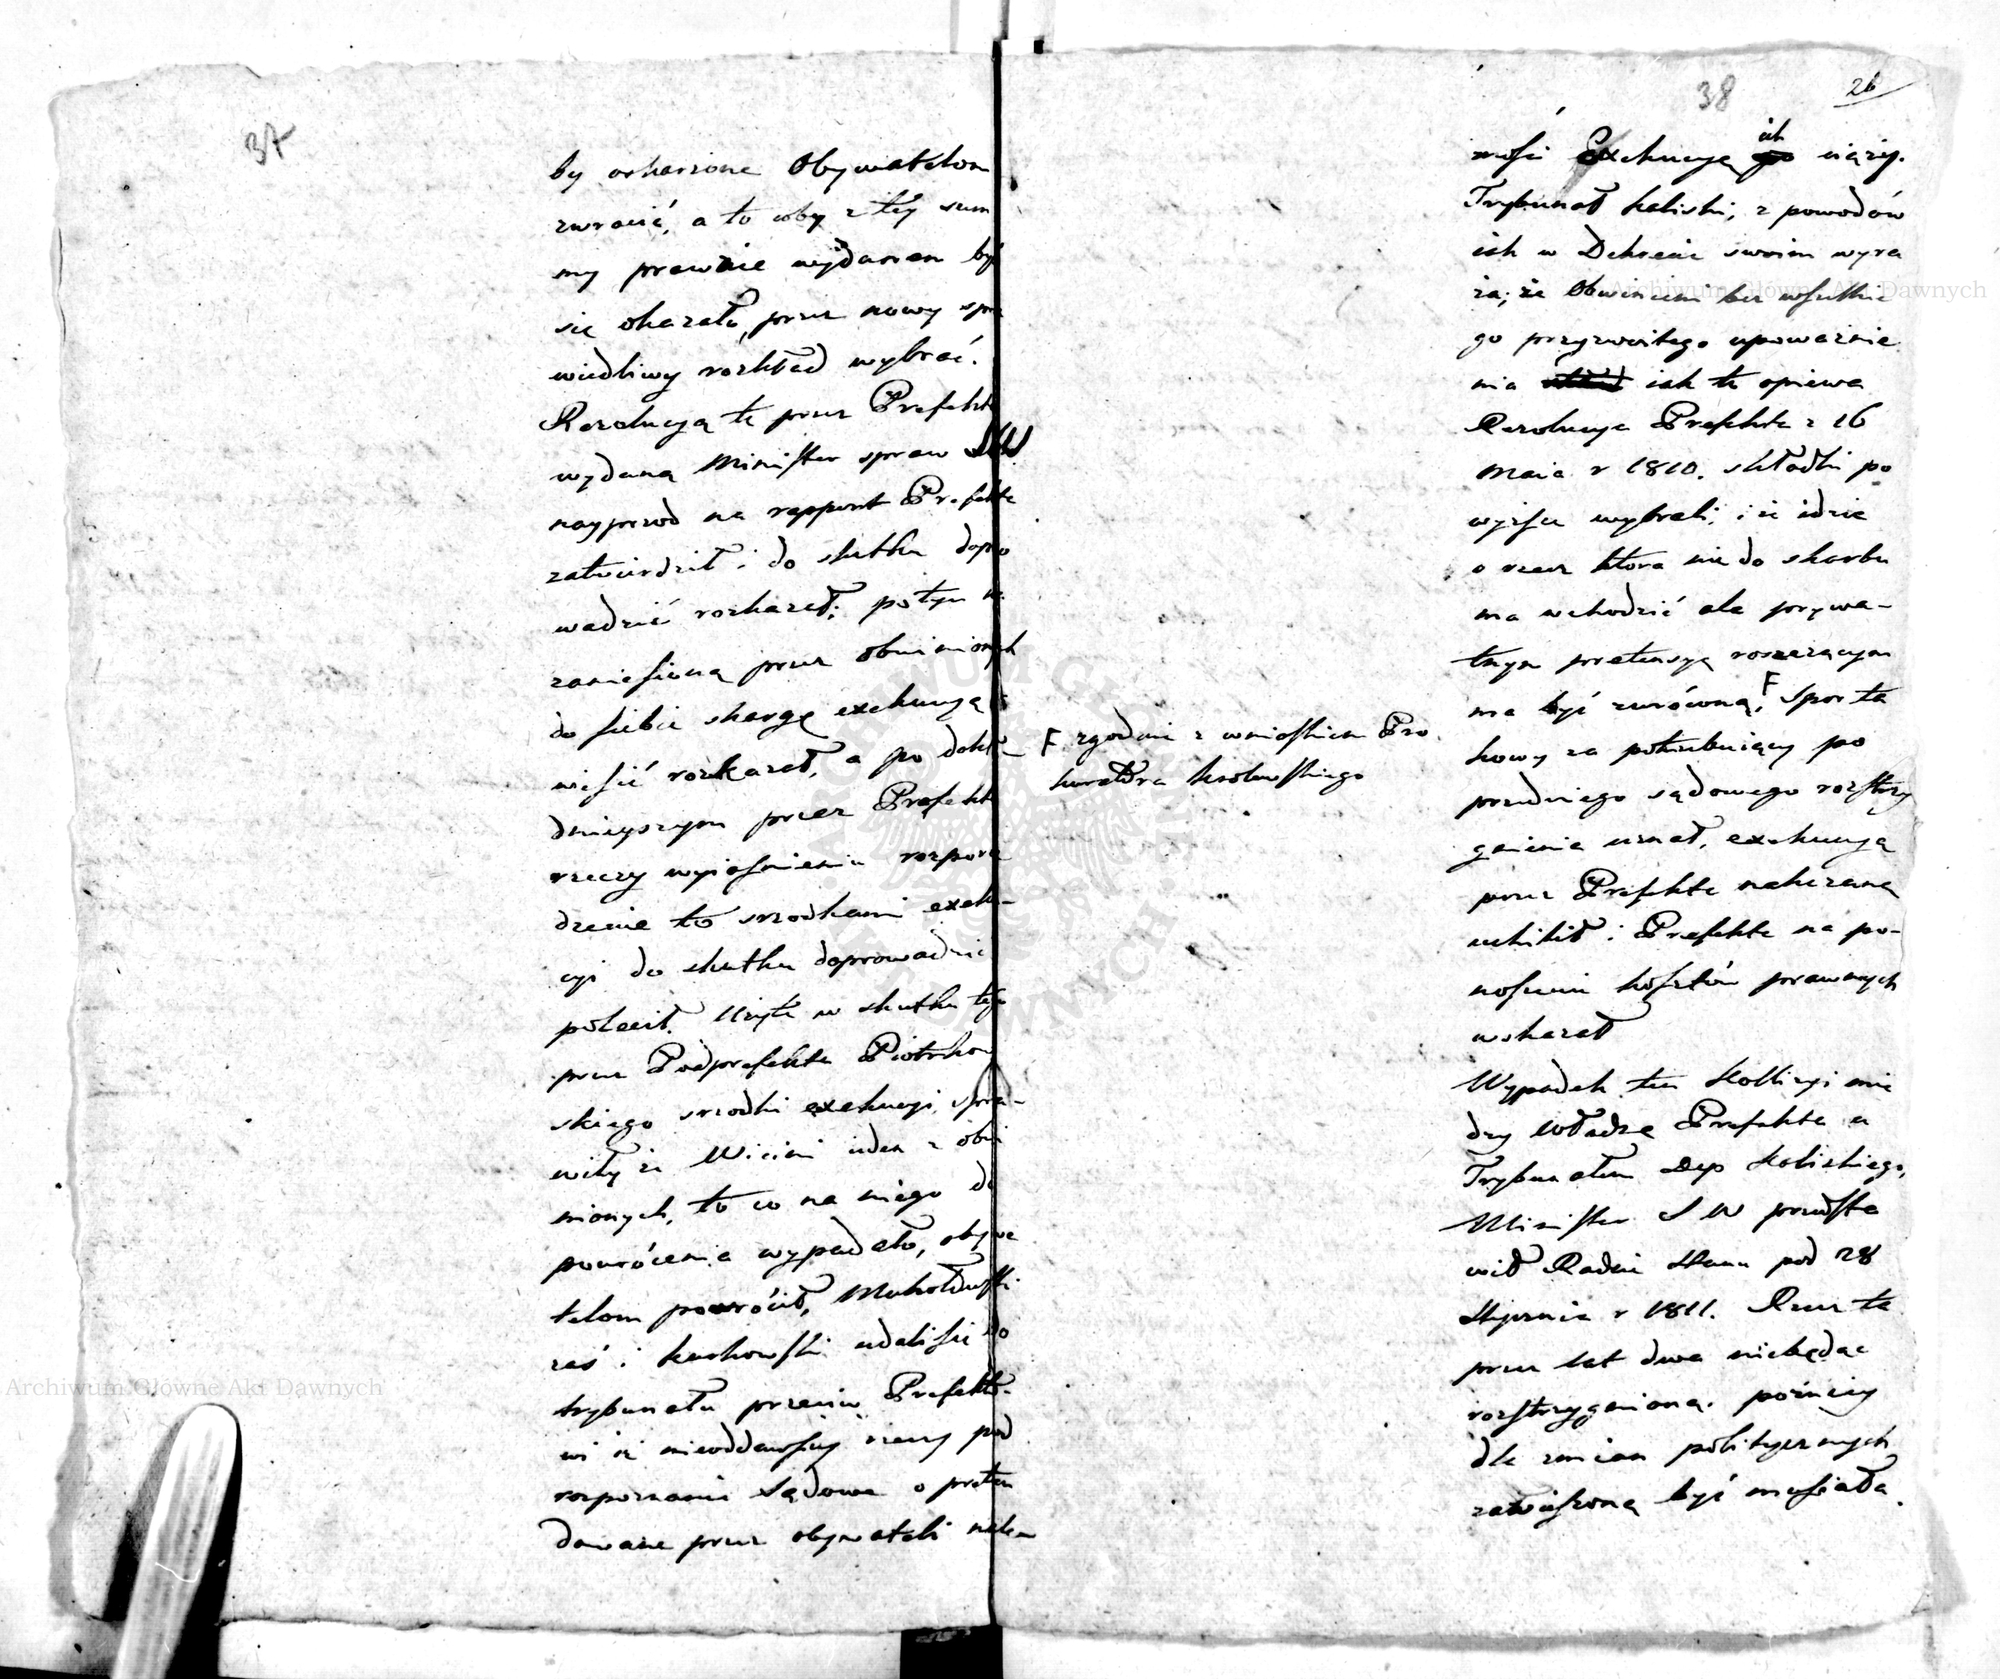 37
by oskarżone Obywatelom
zwrócić, a to coby z tey sum
my prawnie wydanem być
się okazało, przez nowy spra
wiedliwy rozkład wybrać.
Rezolucyą tę przez Prefekta
wydaną Minister spraw SW
nayprzod na rapport Prefekta
zatwierdził i do skutku dopro
wadzić rozkazał; potym
zaniesioną przez obwinionych
do siebie skargę exekucyą
wiesić rozkazał, a po dokła
dnieyszym przez Prefekta
rzeczy wyiaśnieniu rozporzą
dzenie to srzodkami exeku-
cyi do skutku doprowadzić
polecił. Użyte w skutku tego
przez Podprefekta Piotrkow
skiego srzodki exekucyi, spra-
wiły że Wicini ieden z obwi
nionych, to co na niego do
powrócenia wypadało, obywa
telom powrócił, Mukołowski
zaś i Kurkowski udali się do
trybunału przeciw Prefekto-
wi iż nieoddawszy rzeczy pod
rozpoznanie Sądowe o preten
dowane przez obywateli należ
38
26
ności Exekucyą ich ciąży.
Trybunał Kaliski, z powodów
iak w Dekrecie swoim wyra
ża; że Obwinieni bez wszelkie
go przyzwoitego upoważnie
nia iak tę opiewa
Rezolucya Prefekta z 16
Maia r 1810. składki po
wyższe wybrali, i że idzie
o rzecz która nie do skarbu
ma wchodzić ale prywa-
tnym pretensyą roszczącym
ma być zwróconą, F Spor ta
kowy za potrzebuiący po
przedniego sądowego rozstrzy
gnienia uznał, exekucyą
przez Prefekta nakazaną
uchylił i Prefekta na po-
noszenie kosztów prawnych
wskazał
F. zgodnie z wnioskiem Pro
kuratora Krolewskiego
Wypadek ten Kollizyi mię
dzy Władzą Prefekta a
Trybunałem Dep Kaliskiego,
Minister S W przedsta
wił Radzie Stanu pod 28
Stycznia r 1811. Rzecz ta
przez lat dwa niebędąc
rozstrzygnioną. pozniey
dla zmian politycznych
zawieszoną być musiała.
Archiwum Główne Akt Dawnych
Archiwum Główne Akt Dawnych